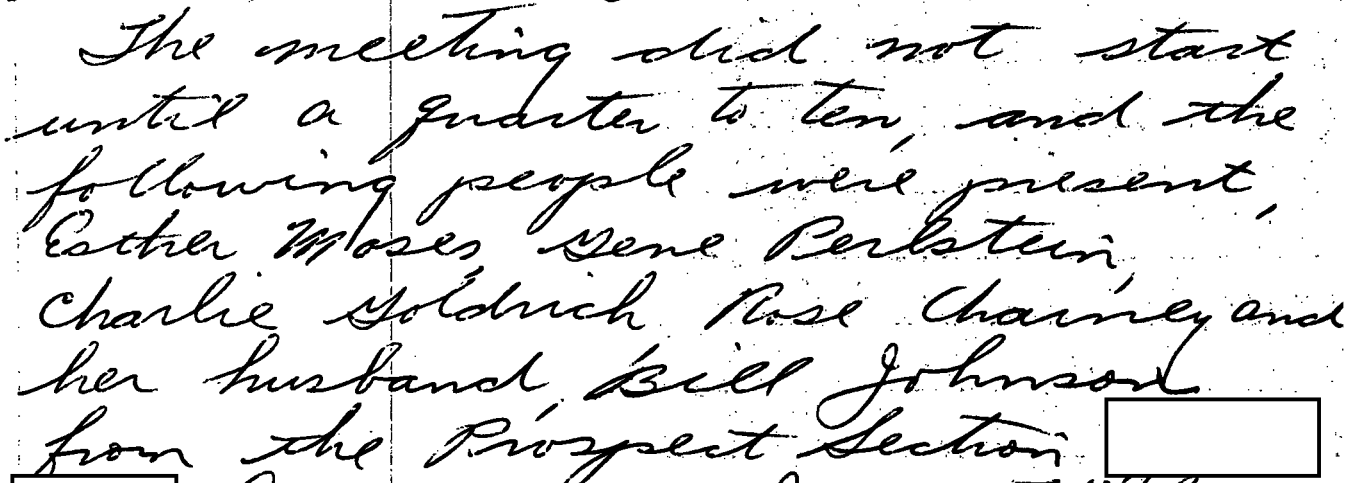 The meeting did not start
until a quarter to ten, and the
following people were present,
Esther Moses, Gene Perlstein,
Charlie Goldrich Rose Chainey and
her husband, Bill Johnson
from the Prospect Section